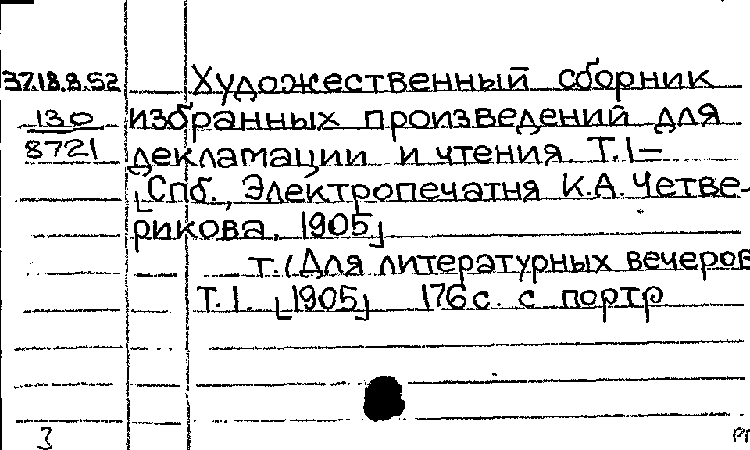 37.18.8.52 Художественный сборник
130 избранных произведений для
8721 декламации и чтения. Т.1–
[Спб., Электропечатня К.А. Четве-
рикова, 1905]
т. (Для литературных вечеров
Т.1. [1905] 176 с. с портр
3